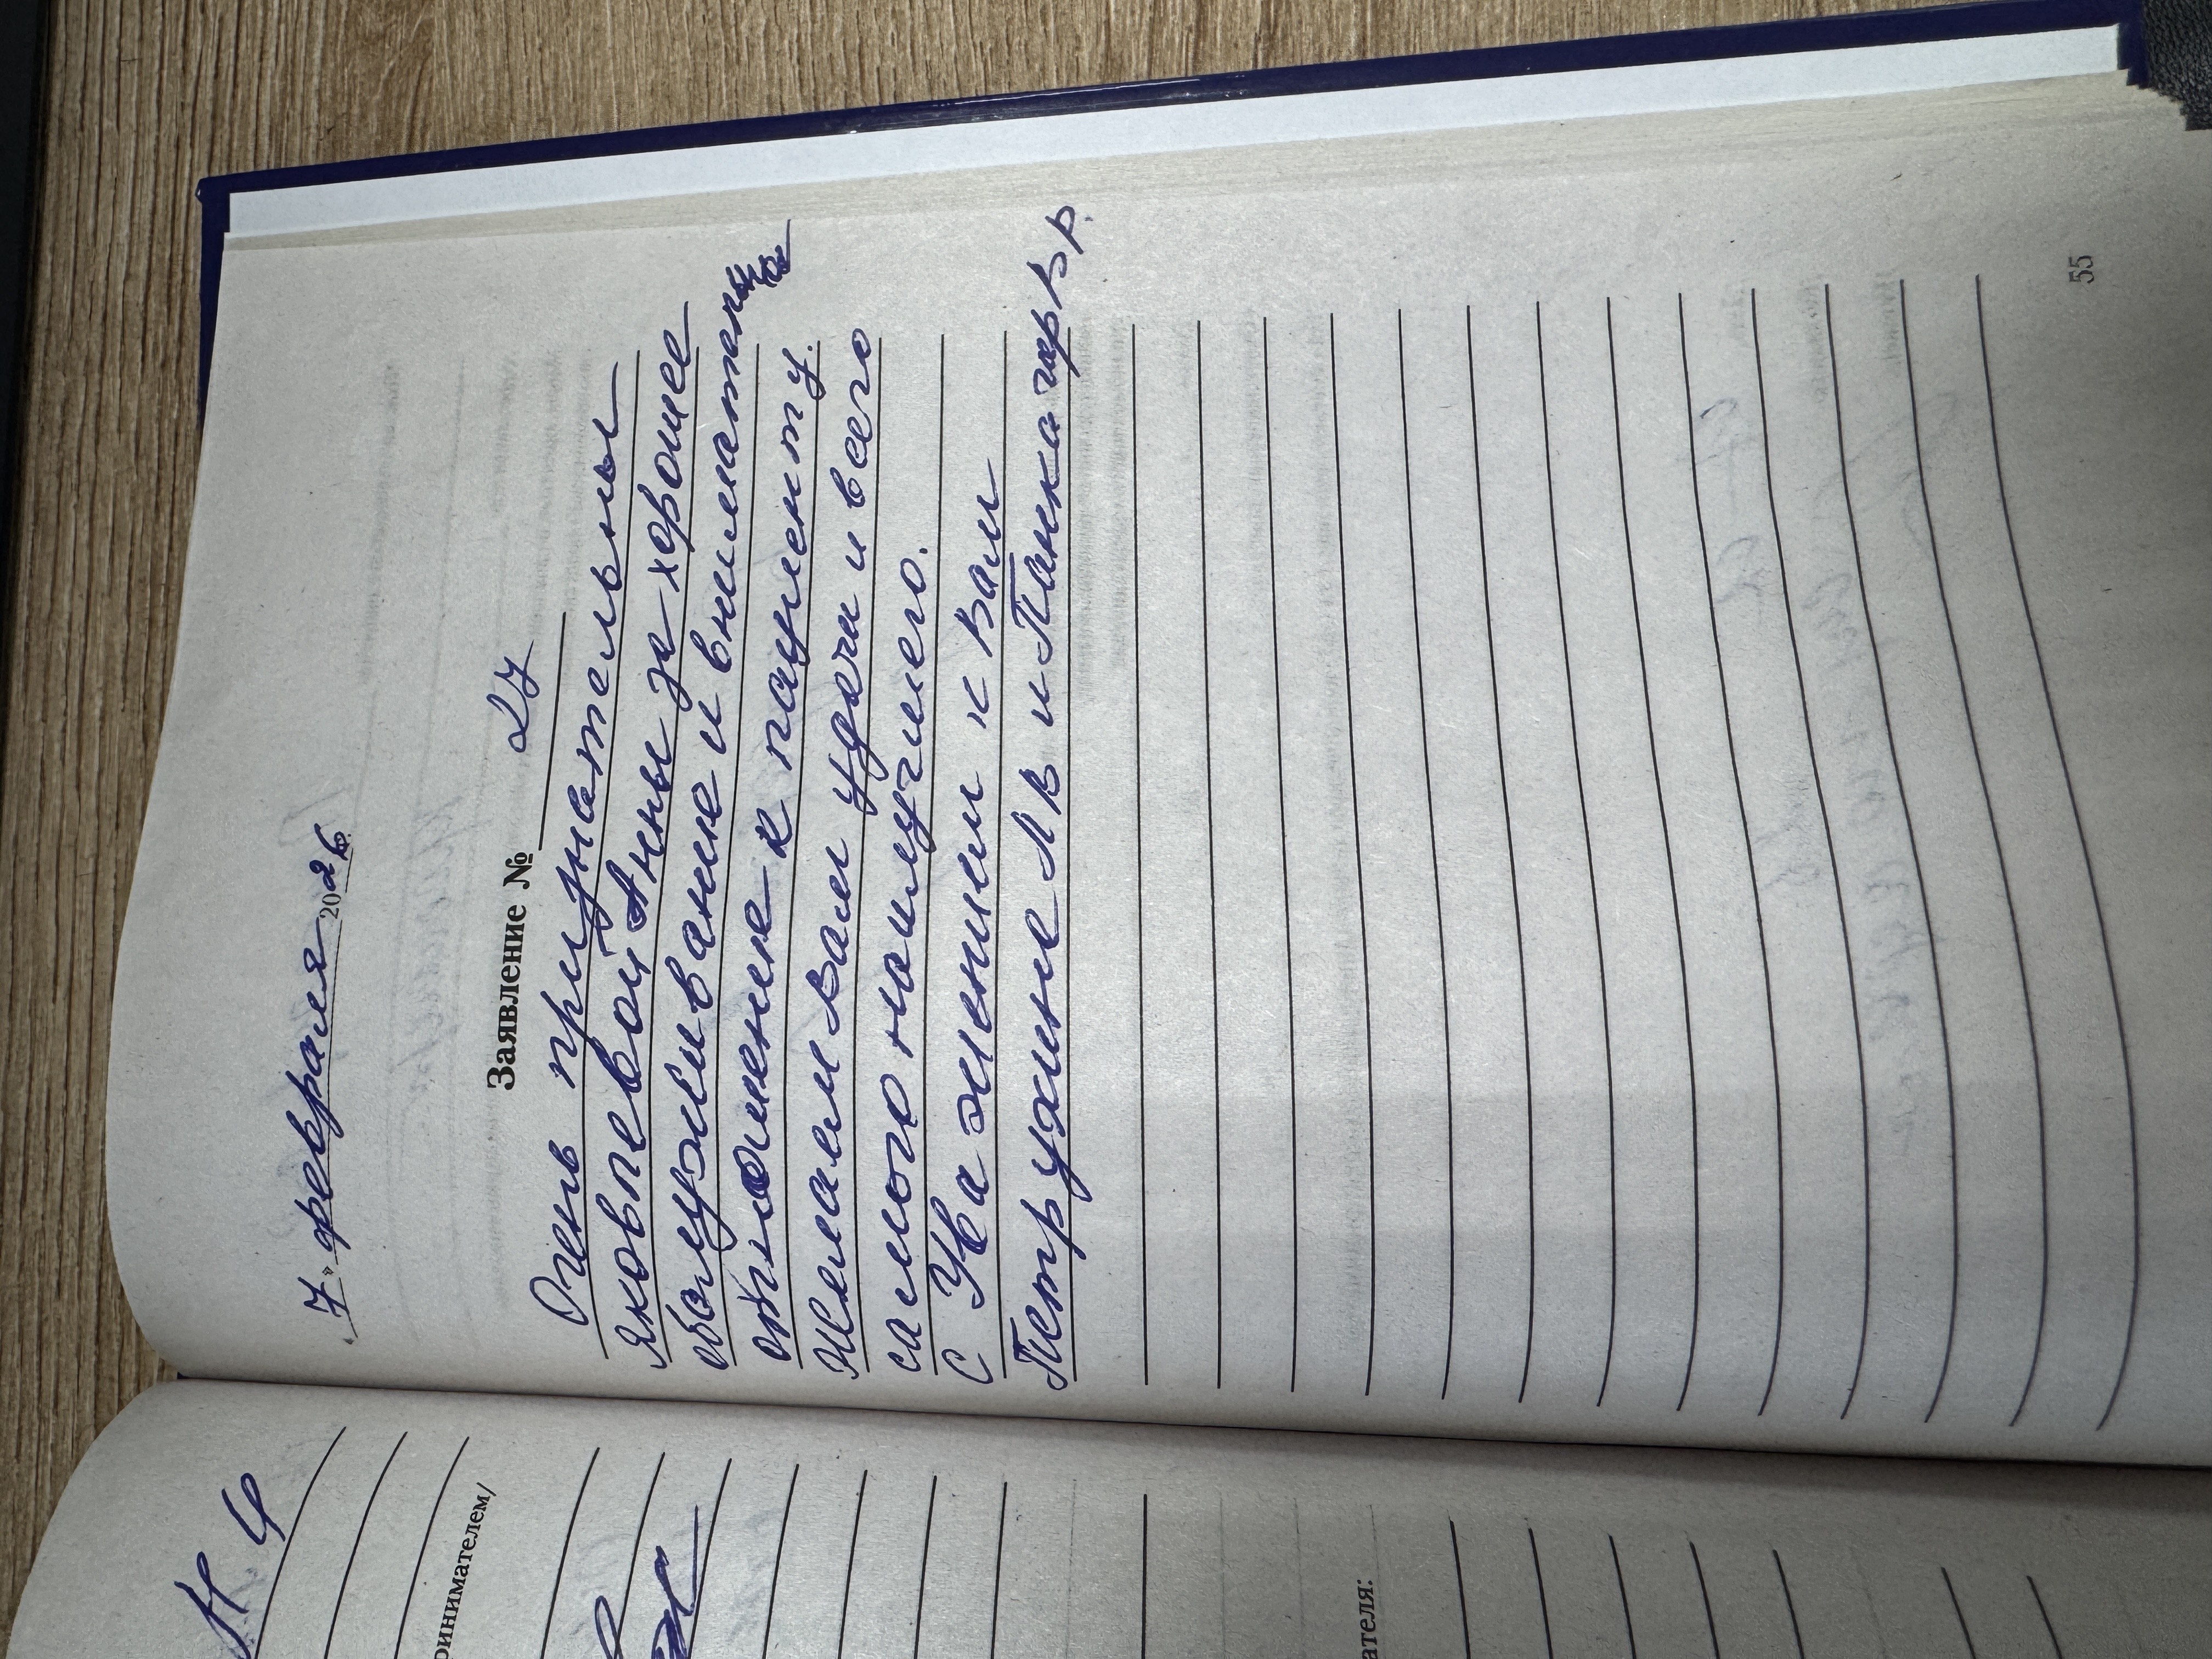 „7" февраля 2026
Заявление № 27
Очень признательны
Яковлевой Анны за хорошее
обслуживание и внимательное
отношение к пациенту.
Желаем Вам удачи и всего
самого наилучшего.
С Уважением к Вам
Петрухине Л В и
55
ринимателем/
ателя: